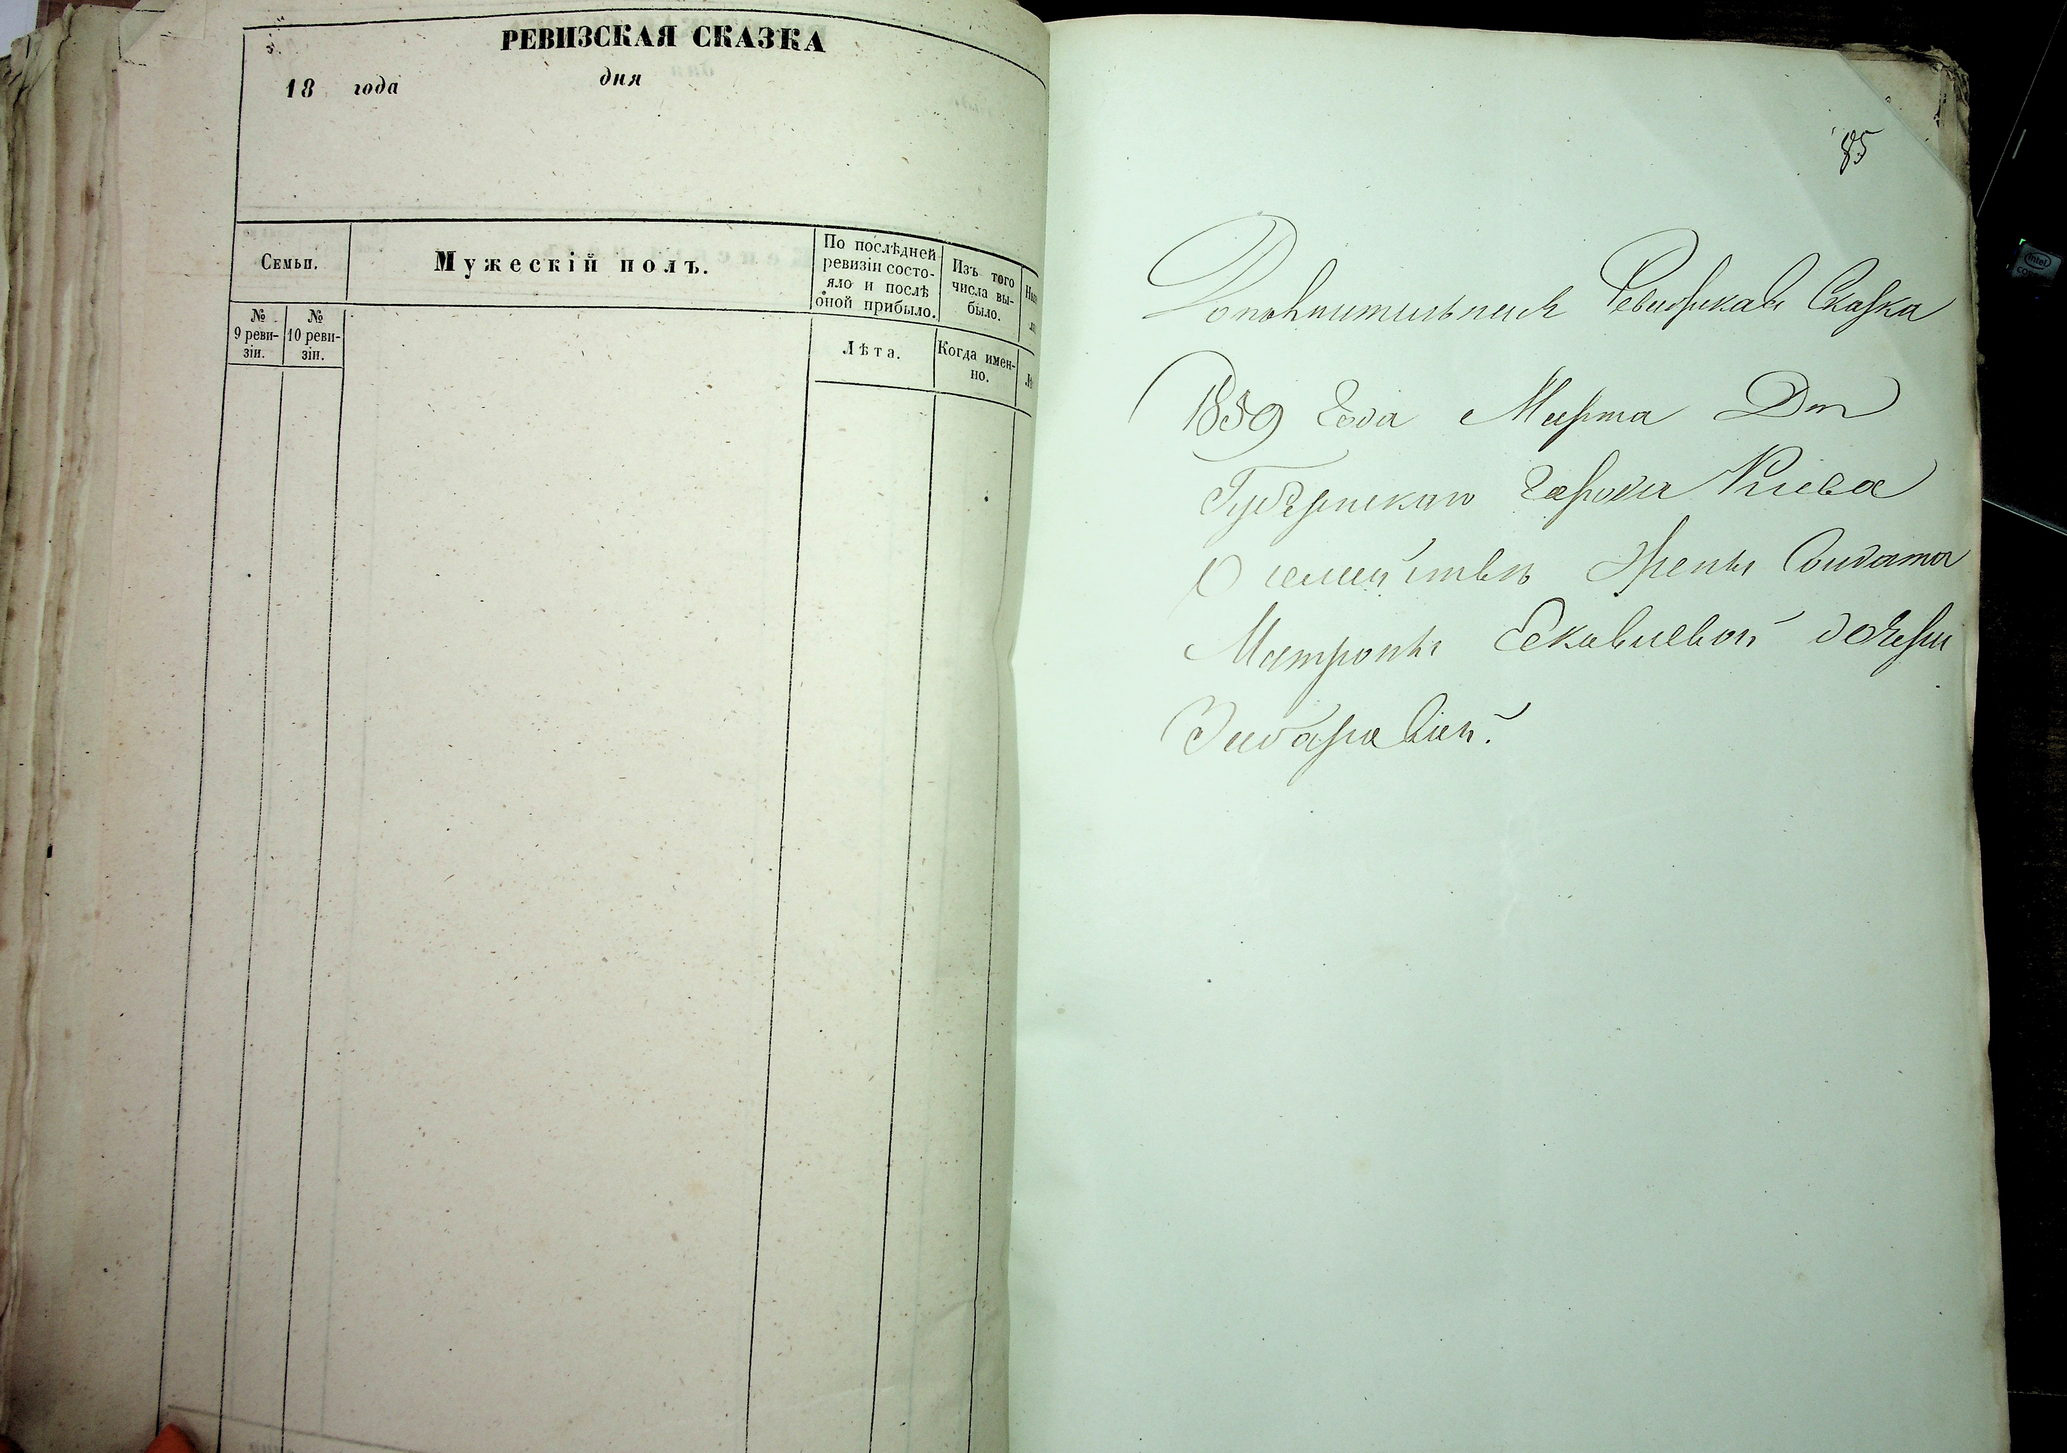 РЕВИЗСКАЯ СКАЗКА
18 года дня
Семьи.
Мужескій полъ.
По послѣдней
ревизіи состо-
яло и послѣ
оной прибыло.
Изъ того
числа вы-
было.
№
9 реви-
зіи.
№
10 реви-
зіи.
Лѣта.
Когда имен-
но.
85
Дополнительная Ревизская Сказка
1859 Года Марта Дня
Губернскаго города Киева
О семействѣ Жены Солдата
Матроны дочери